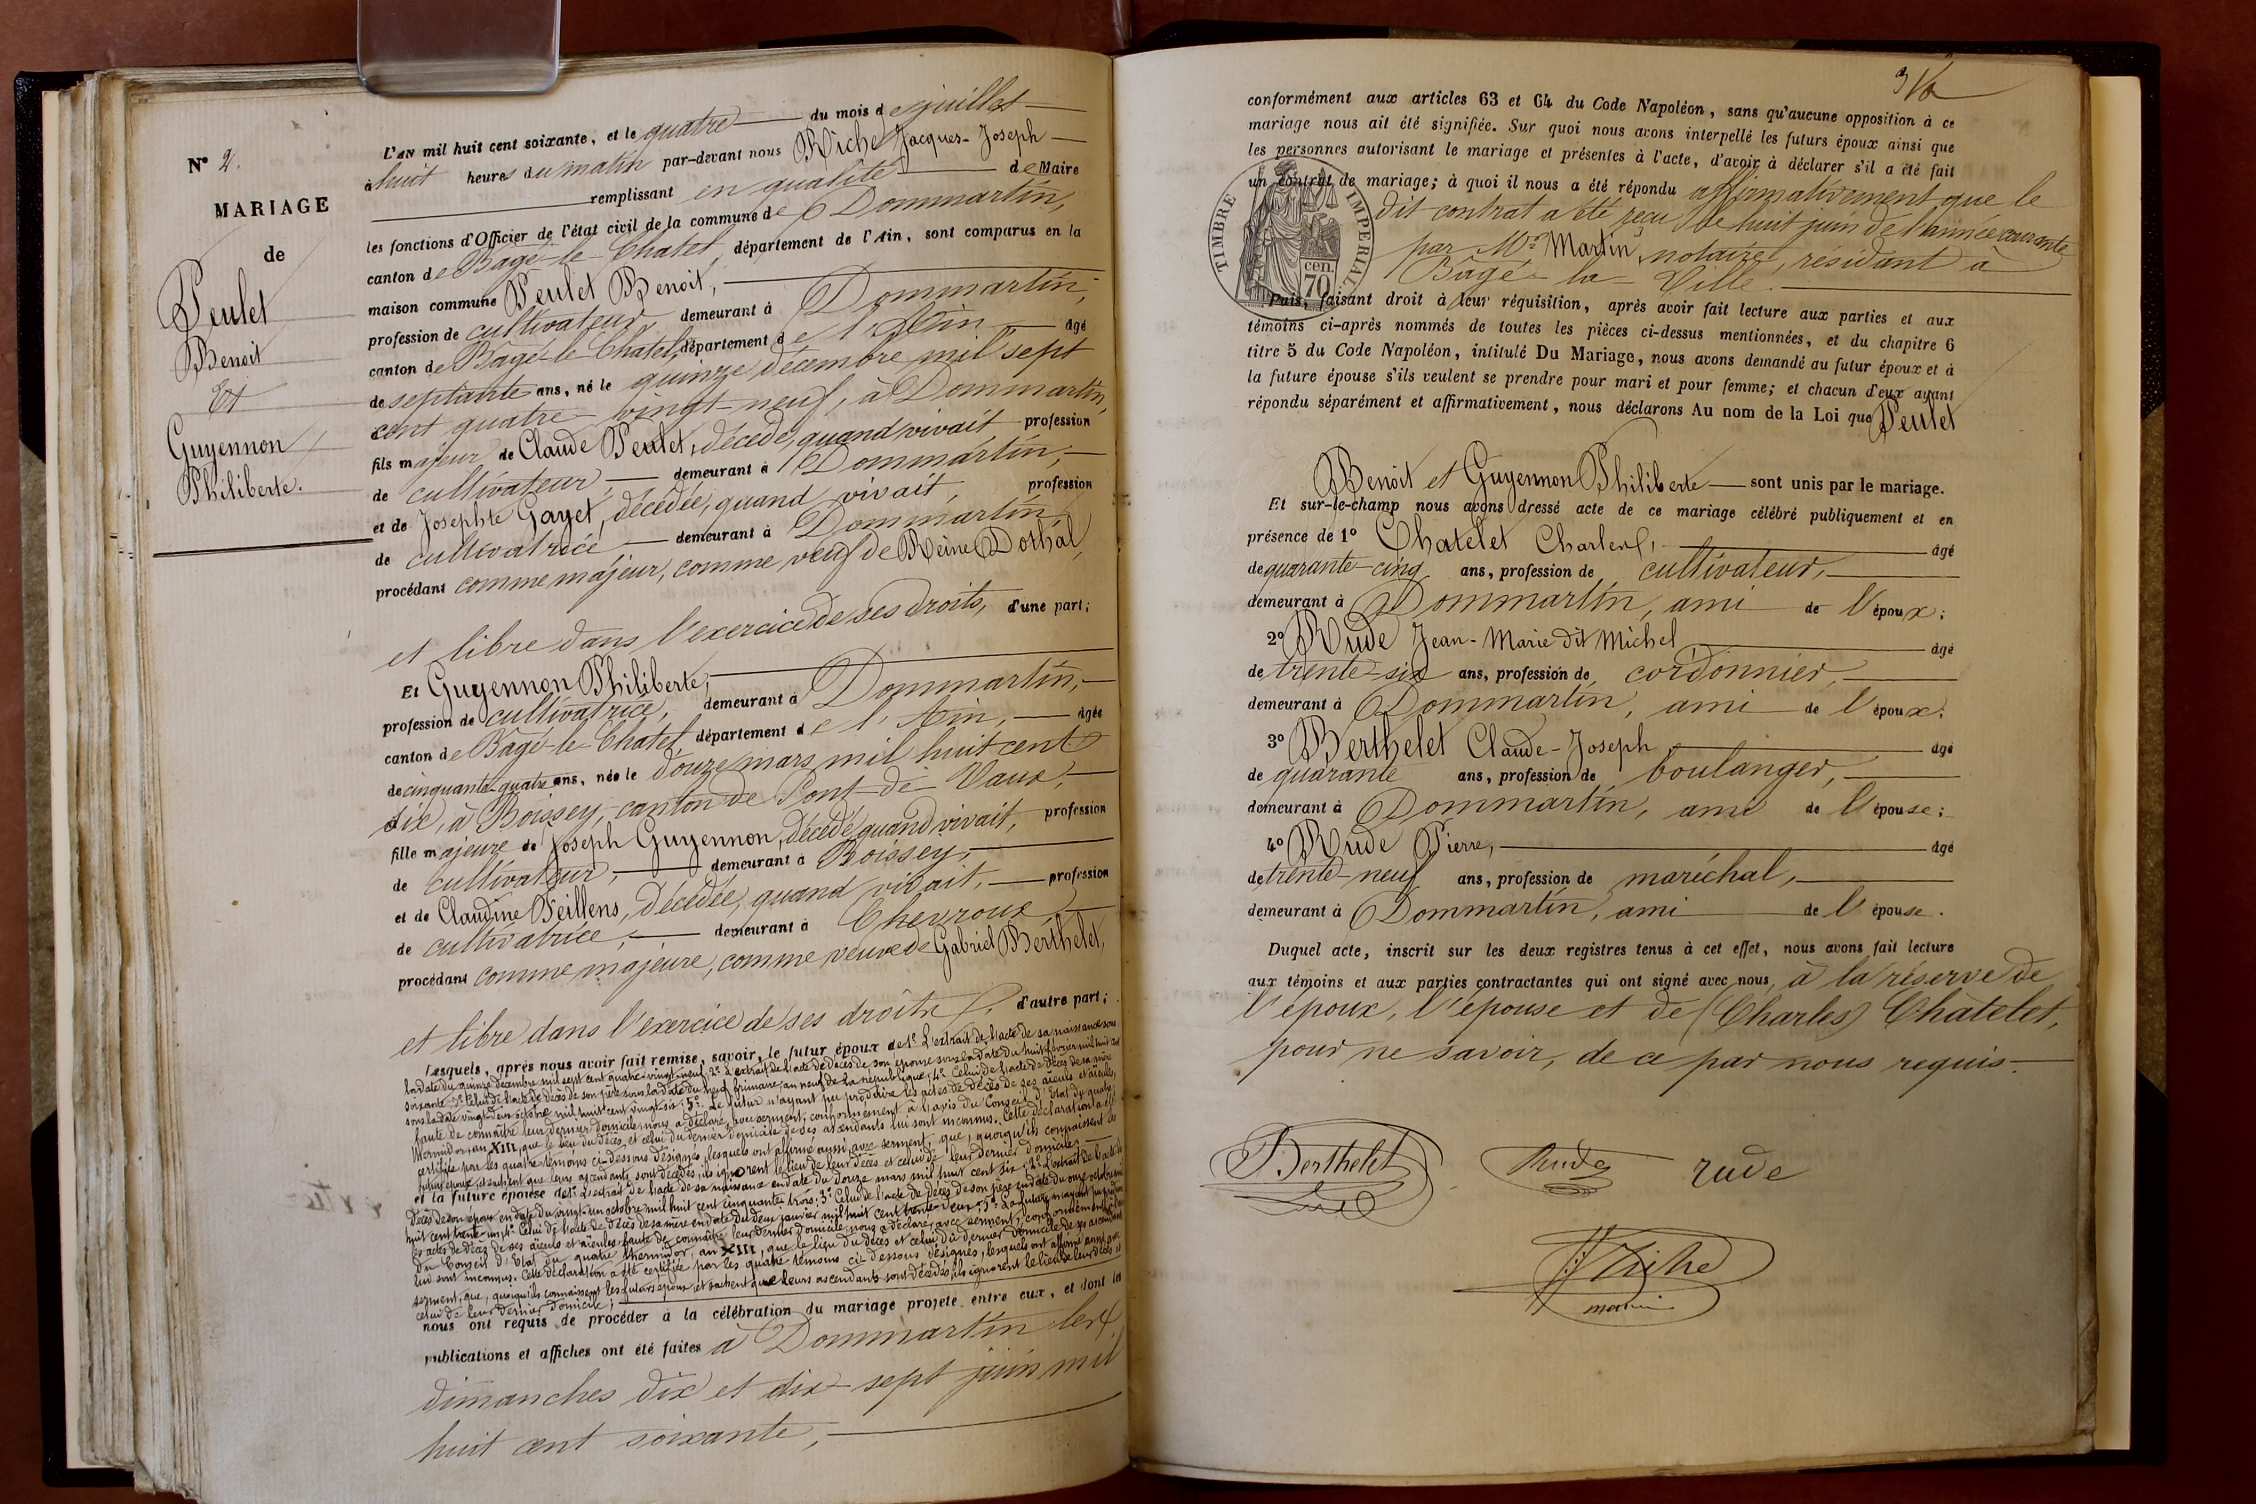 N° 2.
MARIAGE
de
Peulet
Benoit
Et
Guyennon
Philiberte.
L'an mil huit cent soixante, et le quatre du mois de juillet
à huit heures du matin par-devant nous Riche Jacques-Joseph
remplissant en qualité de Maire
les fonctions d'Officier de l'état civil de la commune de Dommartin,
canton de Bâgé-le-Chatel, département de l'Ain, sont comparus en la
maison commune Peulet Benoit,
profession de cultivateur, demeurant à Dommartin,
canton de Bâgé-le-Chatel, département de l'Ain âgé
de septante ans, né le quinze décembre mil sept
cent quatre-vingt-neuf, à Dommartin,
fils majeur de Claude Peulet, décédé, quand vivait profession
de cultivateur, demeurant à Dommartin,
et de Josephte Gayet, décédée, quand vivait, profession
de cultivatrice demeurant à Dommartin,
procédant comme majeur, comme veuf de Reine Dothal,
et libre dans l'exercice de ses droits, d'une part;
Et Guyennon Philiberte,
profession de cultivatrice, demeurant à Dommartin,
canton de Bâgé-le-Chatel, département de l'Ain, âgée
de cinquante-quatre ans, née le douze mars mil huit cent
six, à Boissey, canton de Pont-de-Vaux,
fille majeure de Joseph Guyennon, décédé quand vivait, profession
de cultivateur, demeurant à Boissey,
et de Claudine Feillens, décédée, quand vivait, profession
de cultivatrice, demeurant à Chevroux,
procédant comme majeure, comme veuve de Gabriel Berthelet,
et libre dans l'exercice de ses droits, d'autre part;
Lesquels, après nous avoir fait remise, savoir, le futur époux de 1° L'extrait de l'acte de sa naissance sous
la date du quinze décembre mil sept cent quatre-vingt-neuf. 2° L'extrait de l'acte de décès de son épouse sous la date du huit février mil huit cent
soixante. 3° Celui de l'acte de décès de son père sous la date du neuf frimaire, an neuf de la république; 4° Celui de l'acte de décès de sa mère
sous la date vingt-deux octobre mil huit cent vingt-six; 5° Le futur n'ayant pu produire les actes de décès de ses aïeuls et aïeules,
faute de connaître leur dernier domicile, nous a déclaré, avec serment, conformément à l'avis du Conseil d'Etat du quatre
thermidor, an XIII, que le lieu du décès et celui du dernier domicile de ses ascendants lui sont inconnus. Cette déclaration a été
certifiée par les quatre témoins ci-dessous désignés, lesquels ont affirmé aussi, avec serment, que, quoiqu'ils connaissent les
futurs époux, et sachent que leurs ascendants sont décédés, ils ignorent le lieu de leur décès et celui de leur dernier domicile;
et la future épouse de 1° L'extrait de l'acte de sa naissance en date du douze mars mil huit cent six; 2° L'extrait de l'acte de
décès de son époux en date du vingt-un octobre mil huit cent cinquante-trois; 3° Celui de l'acte de décès de son père en date du onze octobre mil
huit cent trente-un; 4° Celui de l'acte de décès de sa mère en date du deux janvier mil huit cent trente-deux; 5° La future n'ayant pu produire
les actes de décès de ses aïeuls et aïeules, faute de connaître leur dernier domicile, nous a déclaré, avec serment, conformément à l'avis
du Conseil d'Etat du quatre thermidor, an XIII, que le lieu du décès et celui du dernier domicile de ses ascendants
lui sont inconnus. Cette déclaration a été certifiée par les quatre témoins ci-dessous désignés, lesquels ont affirmé aussi avec
serment, que, quoiqu'ils connaissent les futurs époux et sachent que leurs ascendants sont décédés, ils ignorent le lieu de leur décès et
celui de leur dernier domicile;
nous ont requis de procéder à la célébration du mariage projeté entre eux, et dont les
publications et affiches ont été faites à Dommartin les
dimanches dix et dix-sept juin mil
huit cent soixante,
conformément aux articles 63 et 64 du Code Napoléon, sans qu'aucune opposition à ce
mariage nous ait été signifiée. Sur quoi nous avons interpellé les futurs époux ainsi que
les personnes autorisant le mariage et présentes à l'acte, d'avoir à déclarer s'il a été fait
un contrat de mariage; à quoi il nous a été répondu affirmativement que le
dit contrat a été reçu le huit juin de l'année courante
par Me Martin, notaire, résidant à
Bâgé-la-Ville.
TIMBRE IMPERIAL
cen.
70
Puis, faisant droit à leur réquisition, après avoir fait lecture aux parties et aux
témoins ci-après nommés de toutes les pièces ci-dessus mentionnées, et du chapitre 6
titre 5 du Code Napoléon, intitulé Du Mariage, nous avons demandé au futur époux et à
la future épouse s'ils veulent se prendre pour mari et pour femme; et chacun d'eux ayant
répondu séparément et affirmativement, nous déclarons Au nom de la Loi que Peulet
Benoit et Guyennon Philiberte sont unis par le mariage.
Et sur-le-champ nous avons dressé acte de ce mariage célébré publiquement et en
présence de 1° Chatelet Charles, âgé
de quarante-cinq ans, profession de cultivateur,
demeurant à Dommartin, ami de l'époux;
2° Rude Jean-Marie dit Michel âgé
de trente-six ans, profession de cordonnier,
demeurant à Dommartin, ami de l'époux;
3° Berthelet Claude-Joseph âgé
de quarante ans, profession de boulanger,
demeurant à Dommartin, ami de l'épouse;
4° Rude Pierre, âgé
de trente-neuf ans, profession de maréchal,
demeurant à Dommartin, ami de l'épouse.
Duquel acte, inscrit sur les deux registres tenus à cet effet, nous avons fait lecture
aux témoins et aux parties contractantes qui ont signé avec nous, à la réserve de
l'époux, l'épouse et de (Charles) Châtelet,
pour ne savoir, de ce par nous requis.
Berthelet Rude rude
J J Riche